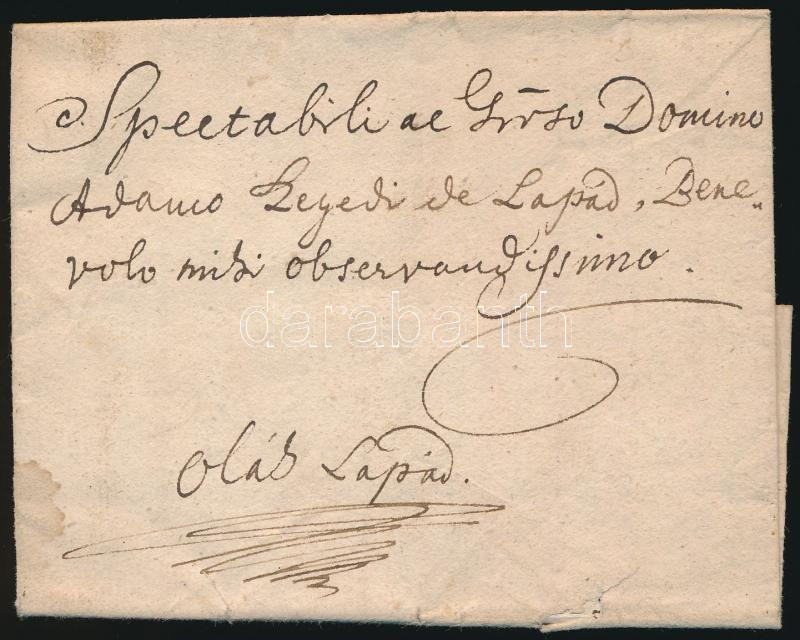 Spectabili ac Grõso Domino
Adamo Zeyedi de Lapád, Bene„
volo mihi observandissimo.
darabanth
Oláh Lapád.